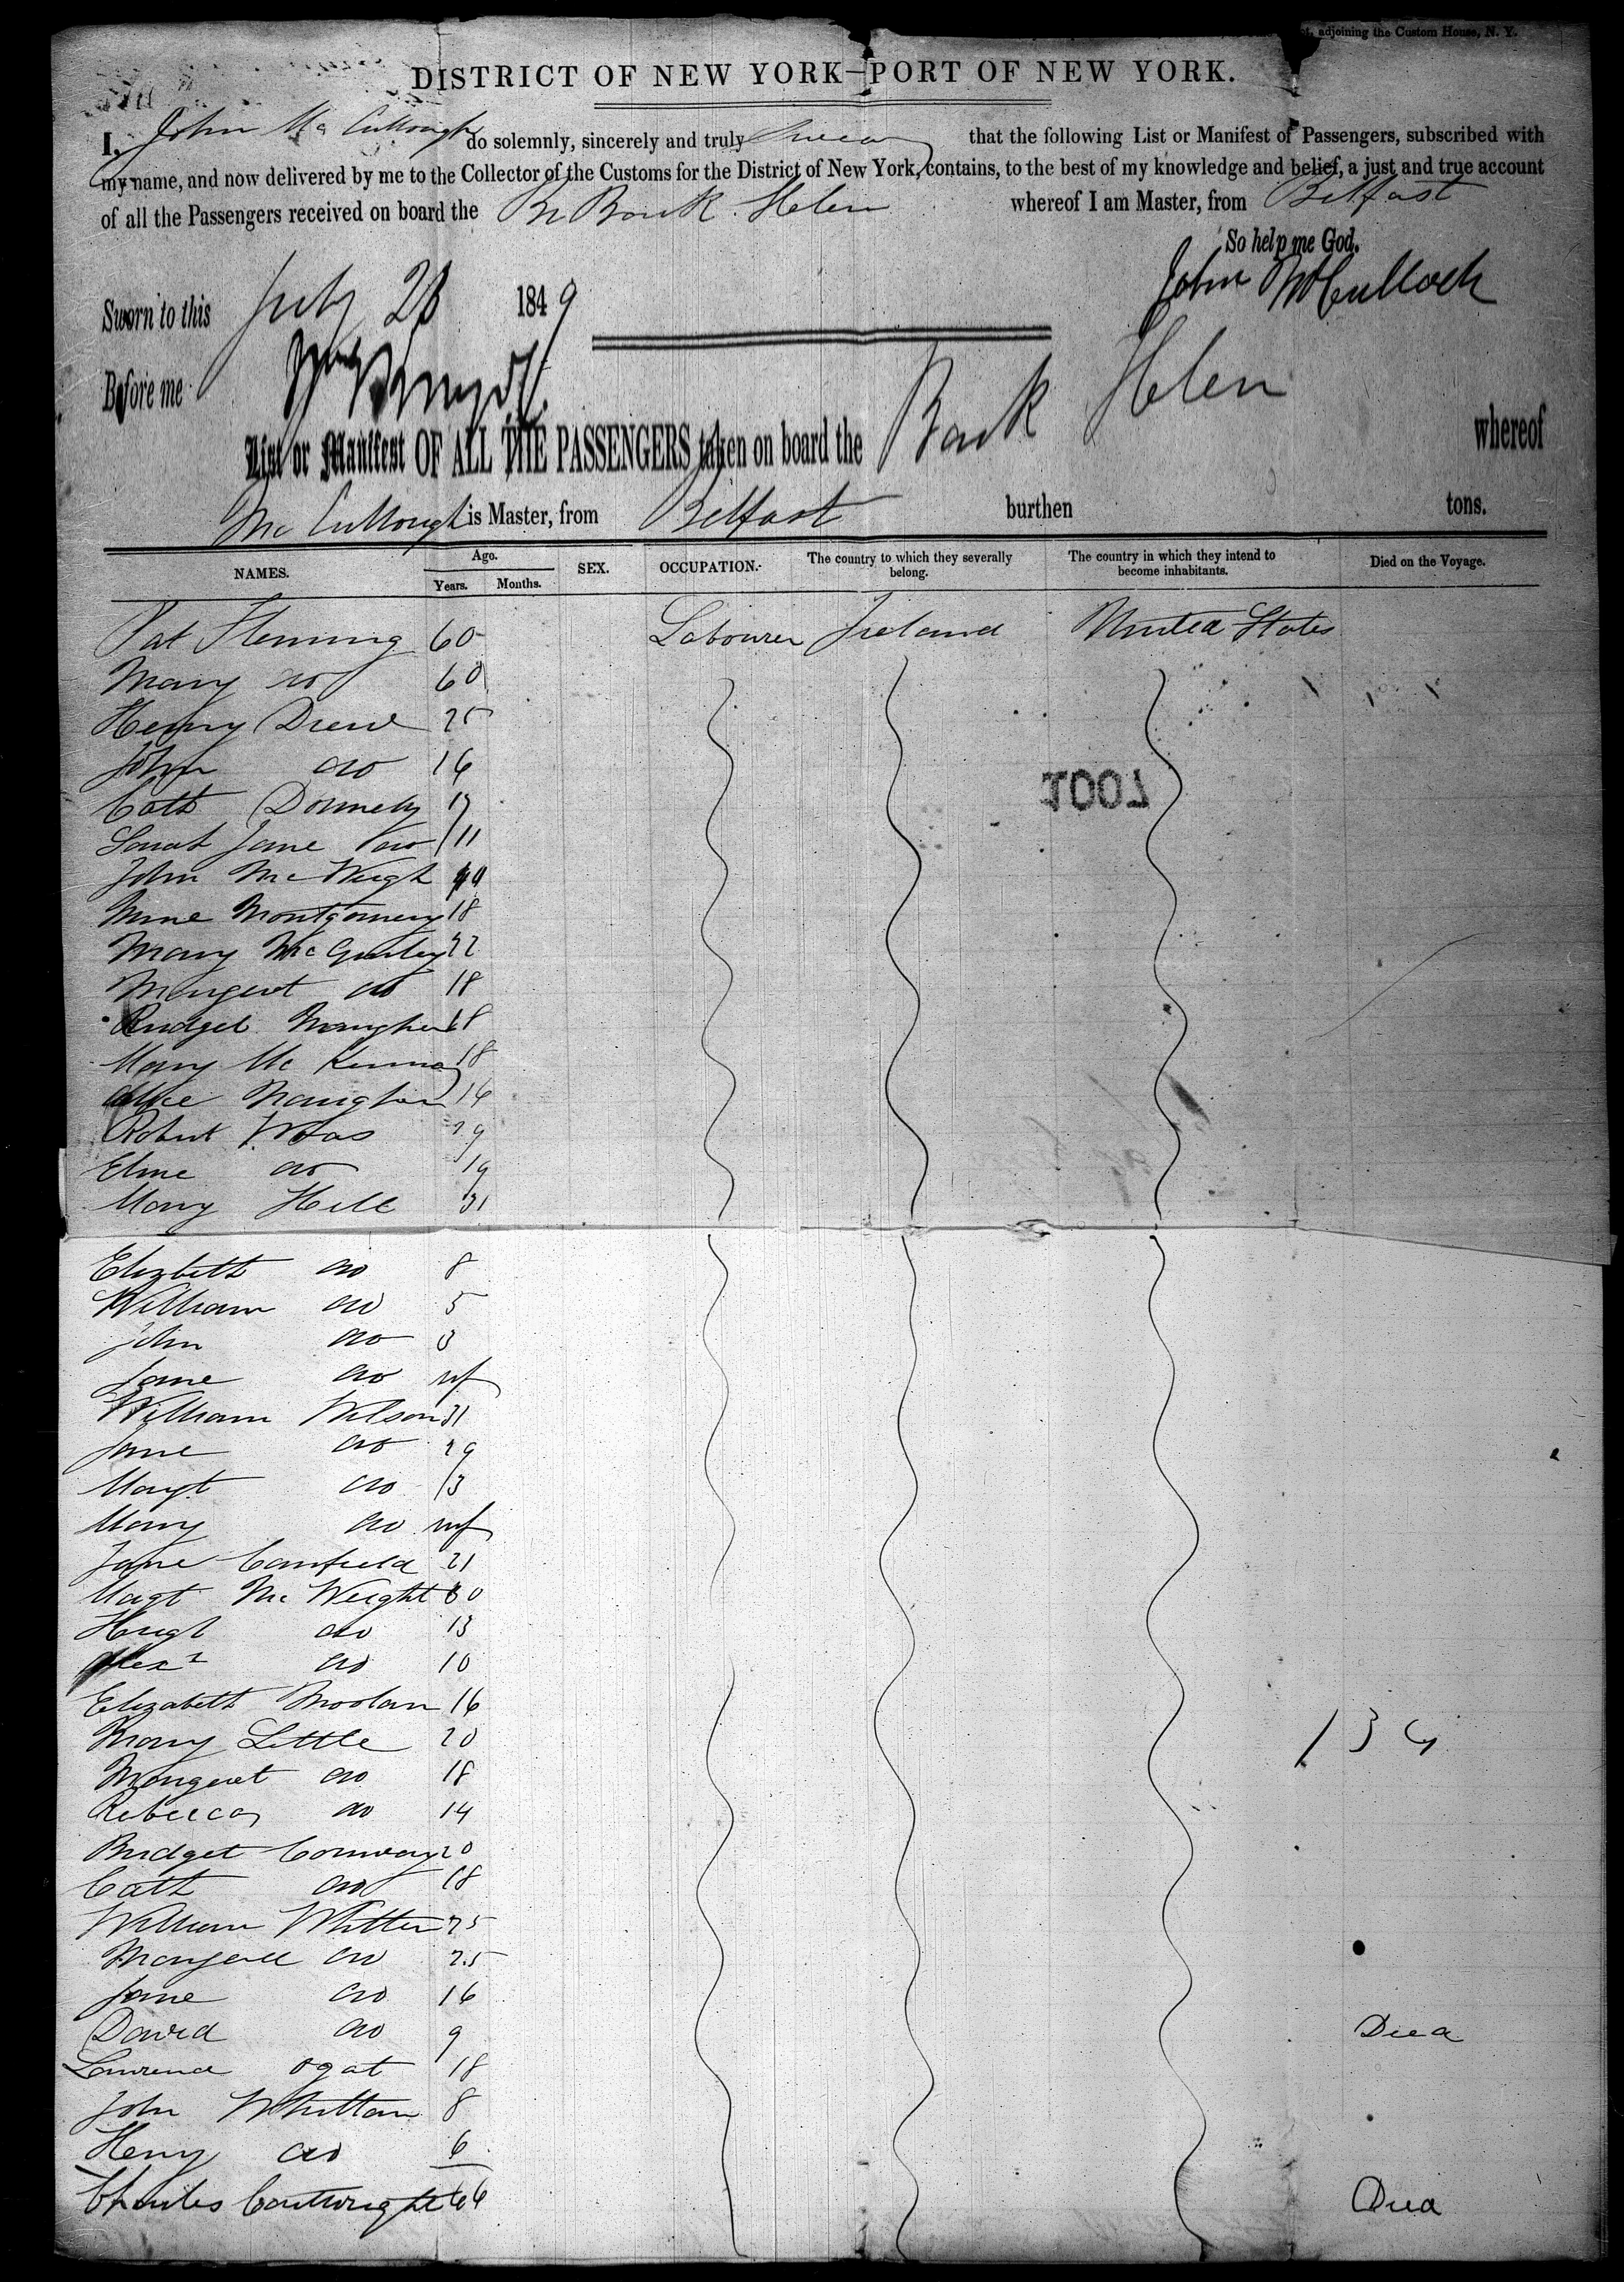 adjoining the Custom House, N. Y.
DISTRICT OF NEW YORK—PORT OF NEW YORK.
I, John McCullough do solemnly, sincerely and truly swear that the following List or Manifest of Passengers, subscribed with
my name, and now delivered by me to the Collector of the Customs for the District of New York, contains, to the best of my knowledge and belief, a just and true account
of all the Passengers received on board the Br Bark Helen whereof I am Master, from Belfast
So help me God.
John McCulloch
Sworn to this July 28 1849
Before me
List or Manifest OF ALL THE PASSENGERS taken on board the Bark Helen whereof
McCullough is Master, from Belfast burthen tons.
NAMES. Age. Years. Months. SEX. OCCUPATION. The country to which they severally belong. The country in which they intend to become inhabitants. Died on the Voyage.
Pat Fleming 60 Labourer Ireland United States
Mary do 60
Henry Drew 25
John do 16
Cath Donnely 17
Sarah Jane do 11
John McVeigh 40
Montgomery 18
Mary McGinley 22
Margert do 18
Bridget 18
Mary McKenna 18
Alice 16
Robert 29
do 19
Mary Hill 31
Elizbeth do 8
William do 5
John do 3
Jane do inf
William Wilson 31
Jane do 29
Margt do 13
Mary do inf
Jane Canfield 21
Magt McWeight 30
Hugh do 13
Alexr do 10
Elizabeth Moolan 16
Mary Little 20
134
Margeret do 18
Rebecca do 14
Bridget Conway 20
Cath do 18
William Whitten 25
do 25
Jane do 16
David do 9 Died
Lawrence ogat 18
John Whittan 8
Henry do 6
Charles Coulwright 66 Died